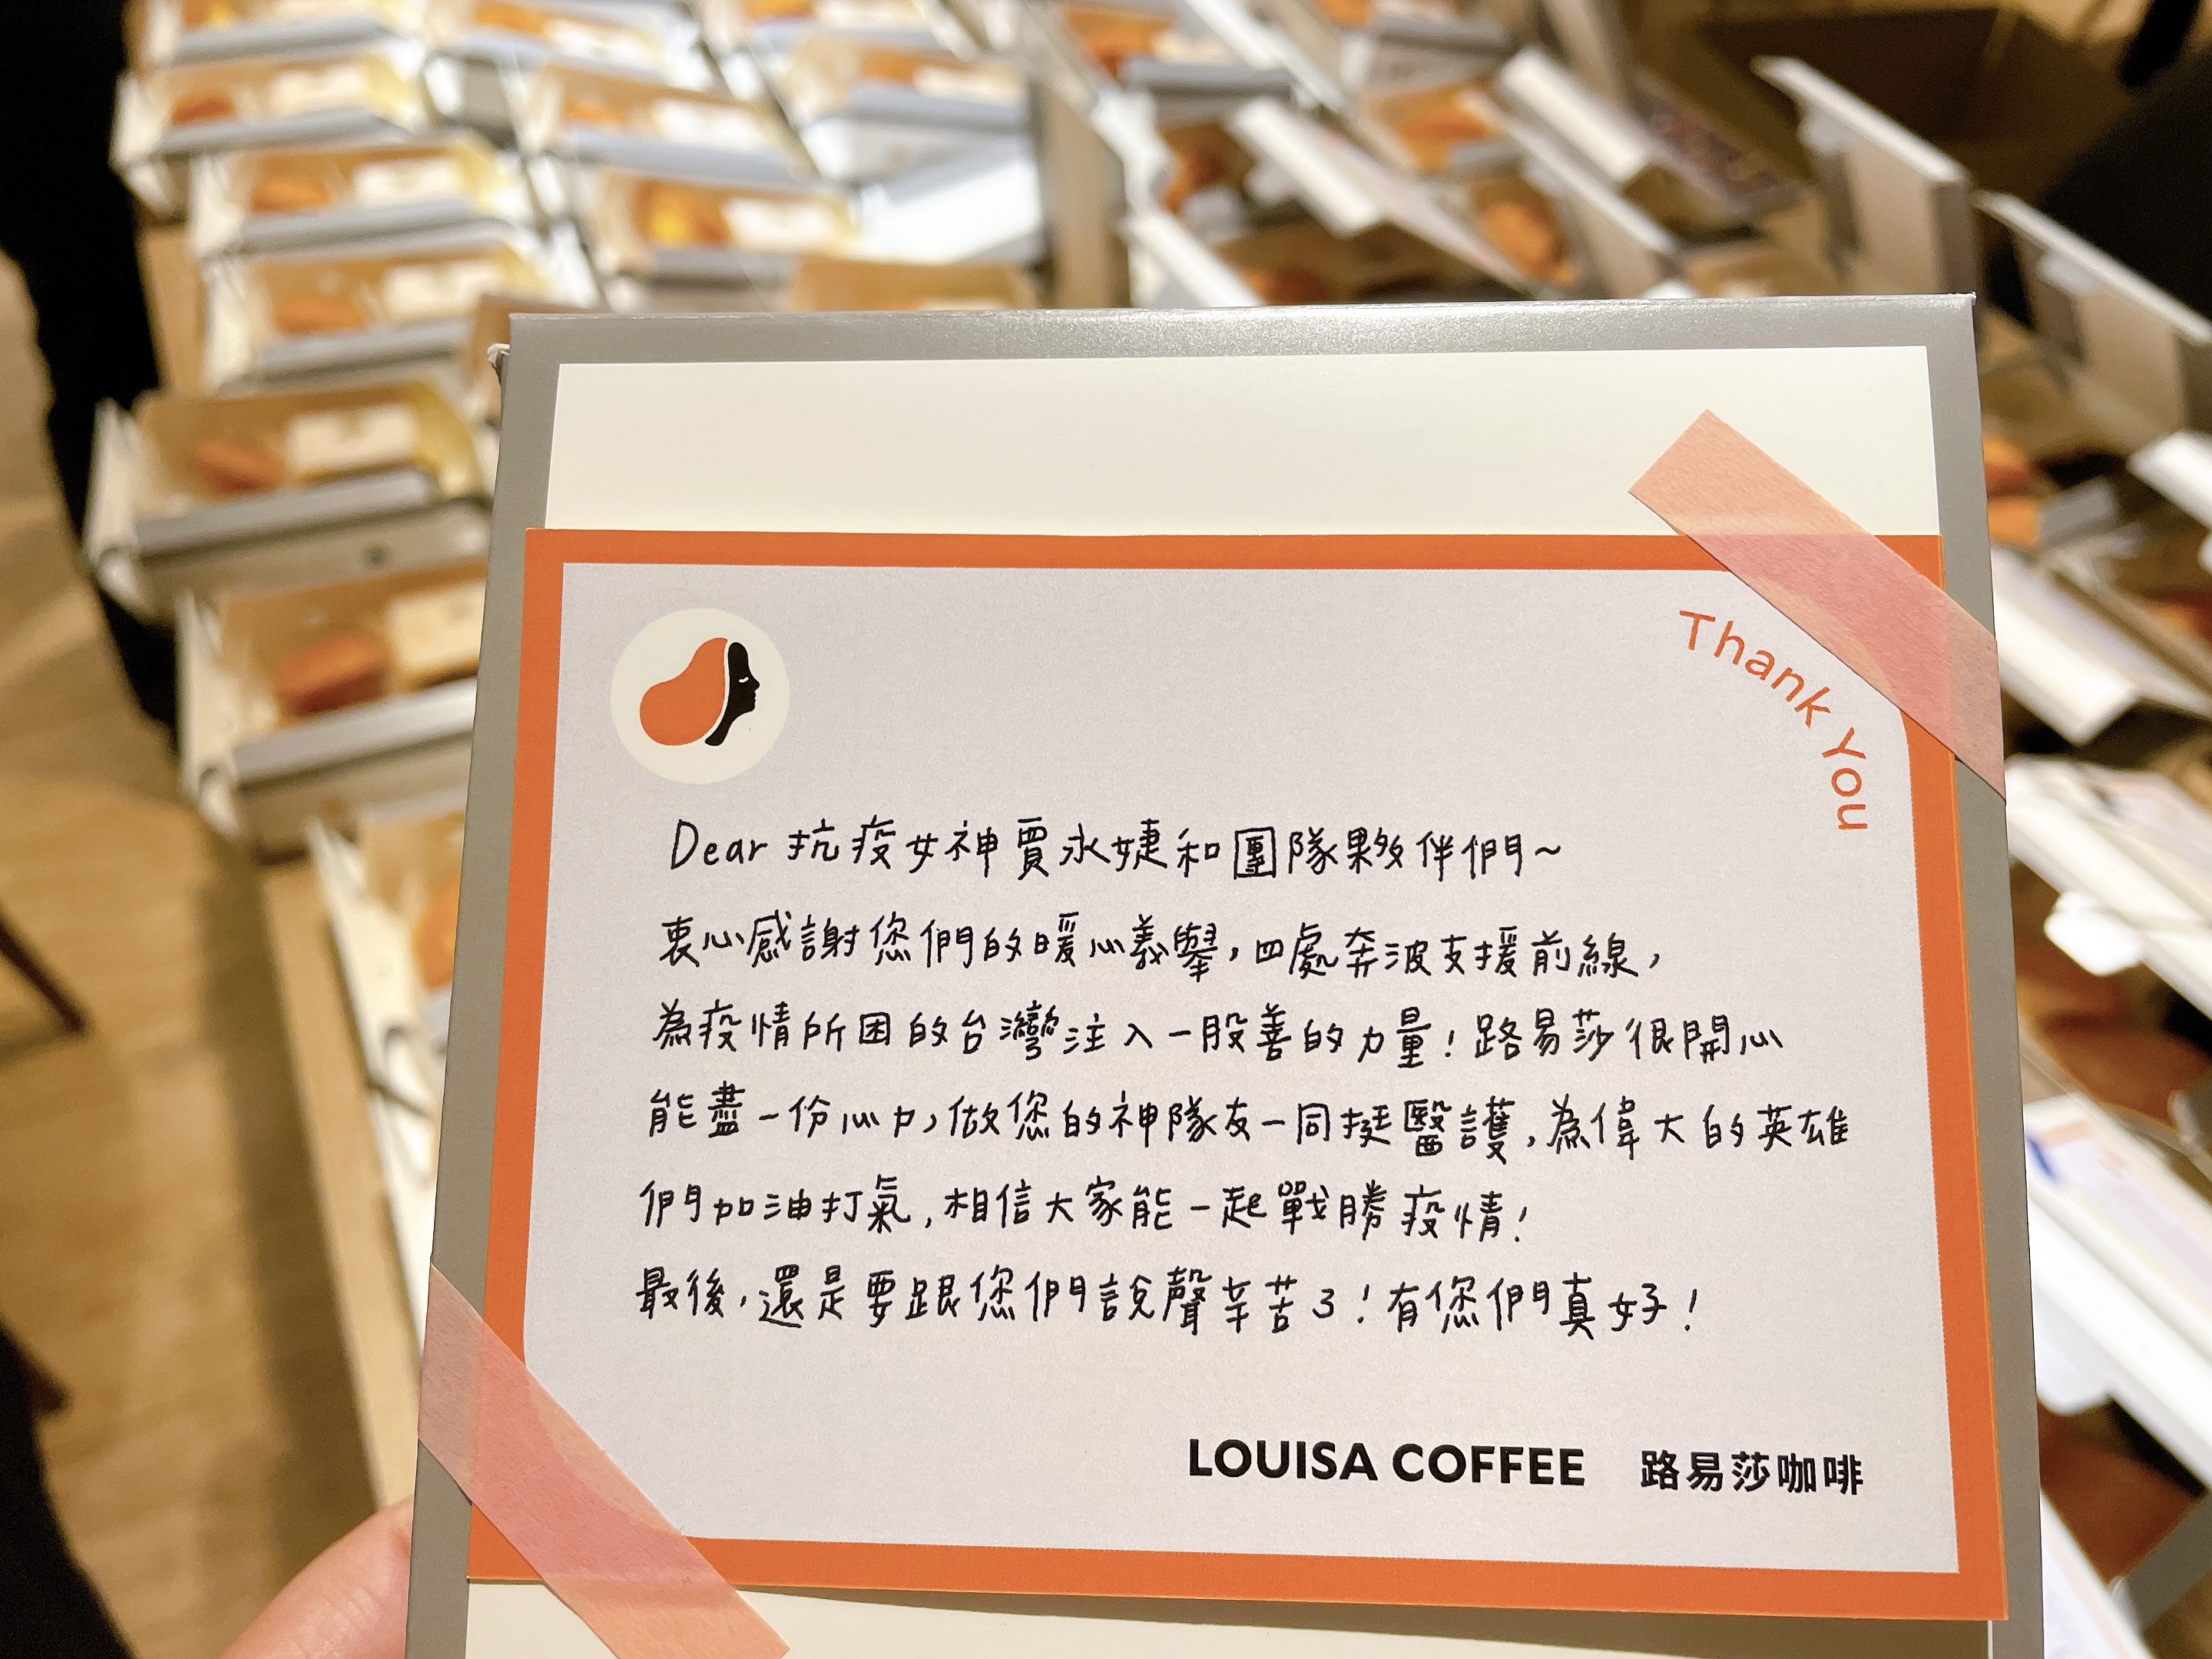 Thank You
Dear 抗疫女神賈永婕和團隊夥伴們~
衷心感謝您們的暖心義舉，四處奔波支援前線，
為疫情所困的台灣注入一股善的力量！路易莎很開心
能盡一份心力，做您的神隊友一同挺醫護，為偉大的英雄
們加油打氣，相信大家能一起戰勝疫情！
最後，還是要跟您們說聲辛苦了！有您們真好！
LOUISA COFFEE 路易莎咖啡